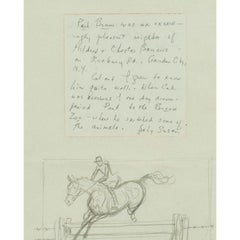 Paul Brown was an exceed-
ingly pleasant neighbor of
Mildred & Chester Bonnie
on Roxbury Rd., Garden City,
N.Y.
Cal and I grew to know
him quite well. When Cal
was
one day accom-
panied Paul to the Bronx
Zoo - where he sketched some of
the animals.